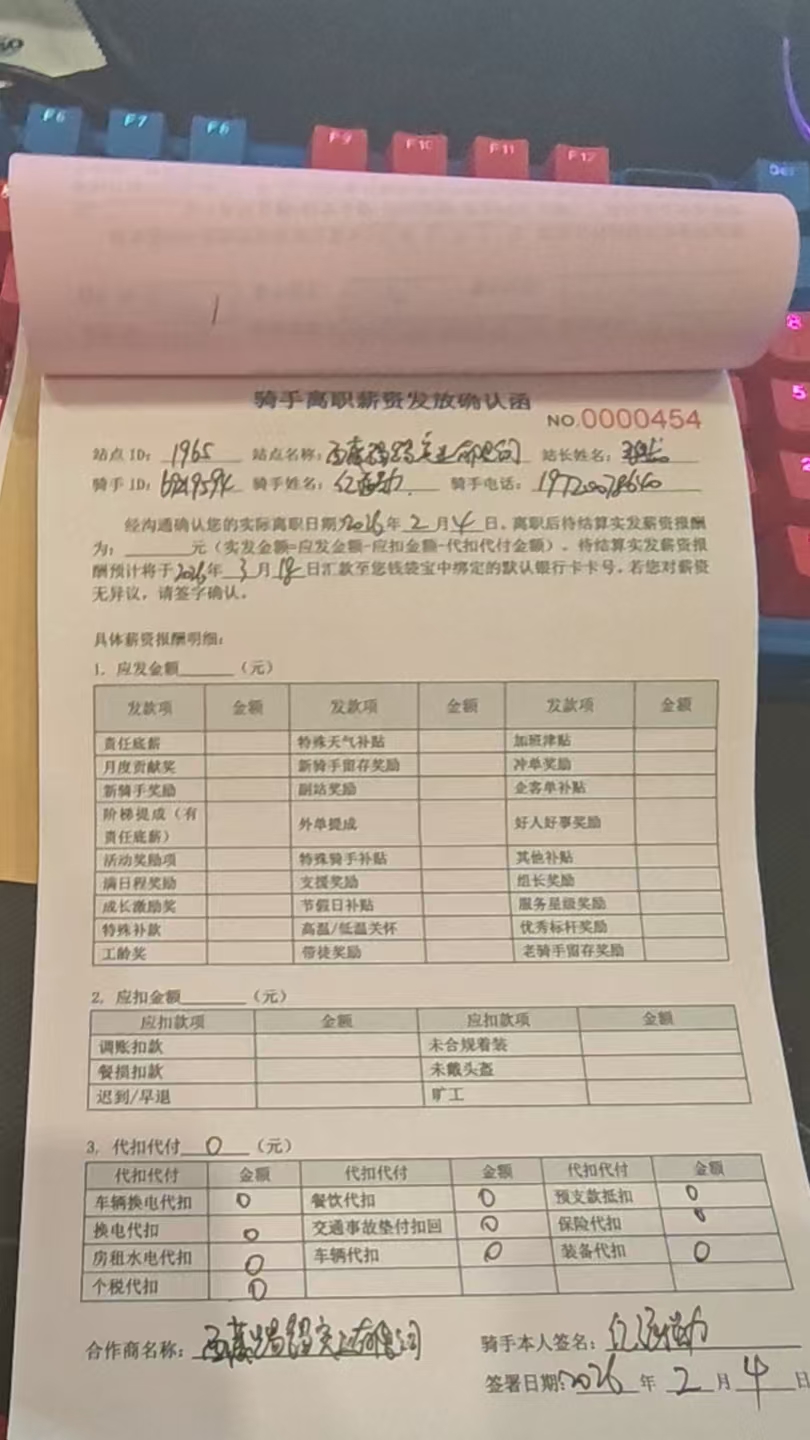 F6 F7 F8 F9 F10 F11 F12 Del
8
5
骑手离职薪资发放确认函
NO.0000454
站点ID: 1965 站点名称: 站长姓名:
骑手ID: 骑手姓名: 骑手电话: 19720078640
经沟通确认您的实际离职日期2026年2月4日。离职后待结算实发薪资报酬
为:______元(实发金额=应发金额-应扣金额-代扣代付金额)。待结算实发薪资报
酬预计将于2026年3月18日汇款至您钱袋宝中绑定的默认银行卡卡号。若您对薪资
无异议,请签字确认。
具体薪资报酬明细:
1. 应发金额______(元)
发款项 金额 发款项 金额 发款项 金额
责任底薪 特殊天气补贴 加班津贴
月度贡献奖 新骑手留存奖励 冲单奖励
新骑手奖励 副站奖励 企客单补贴
阶梯提成(有
责任底薪) 外单提成 好人好事奖励
活动奖励项 特殊骑手补贴 其他补贴
满日程奖励 支援奖励 组长奖励
成长激励奖 节假日补贴 服务星级奖励
特殊补款 高温/低温关怀 优秀标杆奖励
工龄奖 带徒奖励 老骑手留存奖励
2. 应扣金额______(元)
应扣款项 金额 应扣款项 金额
调账扣款 未合规着装
餐损扣款 未戴头盔
迟到/早退 旷工
3. 代扣代付 0 (元)
代扣代付 金额 代扣代付 金额 代扣代付 金额
车辆换电代扣 0 餐饮代扣 0 预支款抵扣 0
换电代扣 0 交通事故垫付扣回 0 保险代扣 0
房租水电代扣 0 车辆代扣 0 装备代扣 0
个税代扣 0
合作商名称: 骑手本人签名:
签署日期: 2026年2月4日